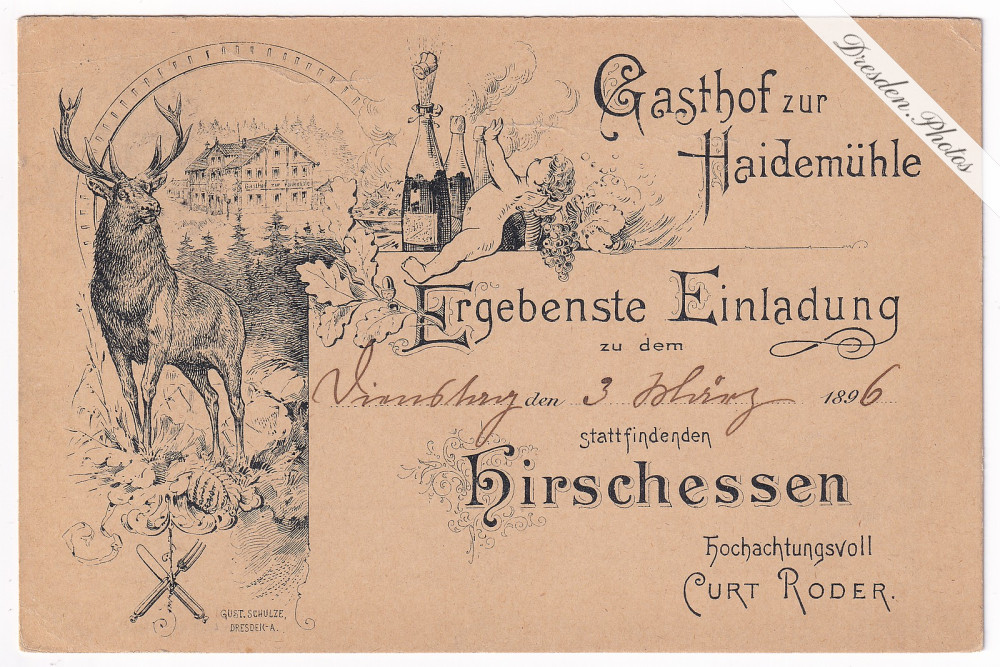 Dresden.Photos
Gasthof zur
Haidemühle
Ergebenste Einladung
zu dem
Dienstag den 3 März 1896
stattfindenden
Hirschessen
Hochachtungsvoll
CURT RODER.
GUST. SCHULZE,
DRESDEN-A.